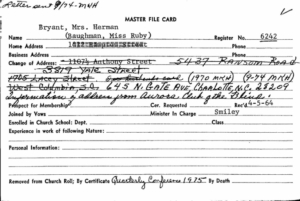 Letter sent 9/74-MKH
MASTER FILE CARD
Bryant, Mrs. Harman
Name (Baughman, Miss Ruby) Register No. 6242
Home Address Phone
Business Address Phone
Change of Address: 11074 Anthony Street 5437 Ransom Road
3819 Yale Street
1705 Lacey Street (1970 MKH) (9-74 MKH)
West Columbia, S.C. 645 N. Gate Ave, Charlotte, N.C. 28209
Information & address from Aurora Club of the Blind.
Prospect for Membership Cor. Requested Rec'd 4-5-64
Joined by Vows Minister In Charge Smiley
Enrolled in Church School: Dept. Class
Experience in work of following Nature:
Personal Information:
Removed from Church Roll; By Certificate Quarterly Conference 1975 By Death